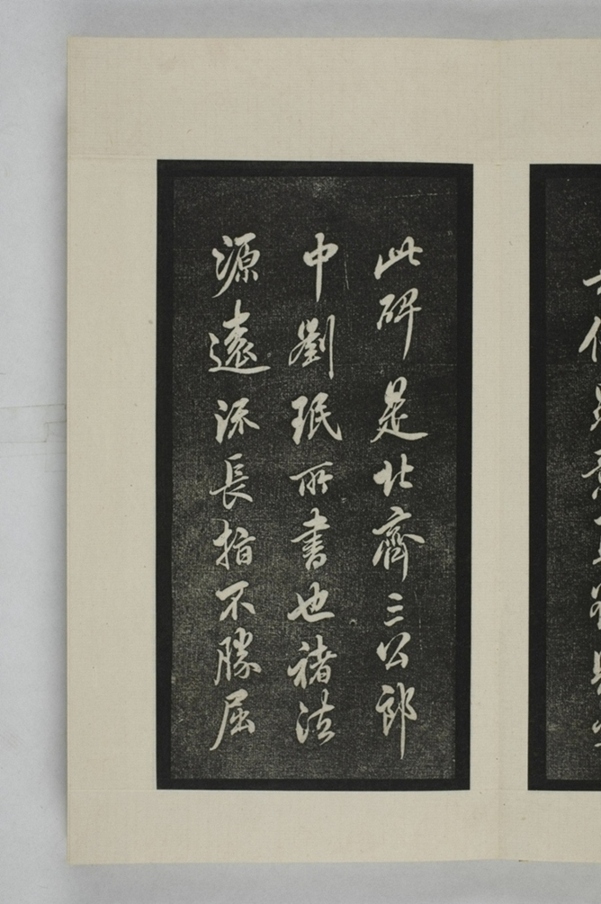 此碑是北齊三公郎
中劉珉所書也褚法
源遠流長指不勝屈